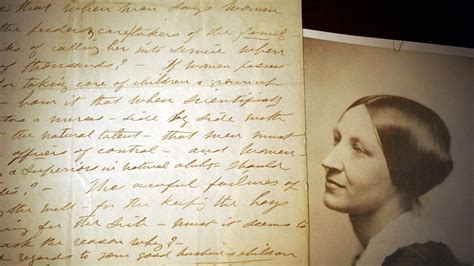 that when man says women
the feeders & caretakers of the famil
of calling her into service when
of thousands? - If women possess
for taking care of children & grown up
from it that when scientifically
as a nurse - side by side with
the natural talent - that men must
officers of control - and women
superiors in natural ability should
? - The awful failures of
the well - for the keeping the boys
for the sick - must it seems to
ask the reason why? -
regards to your good husband & children